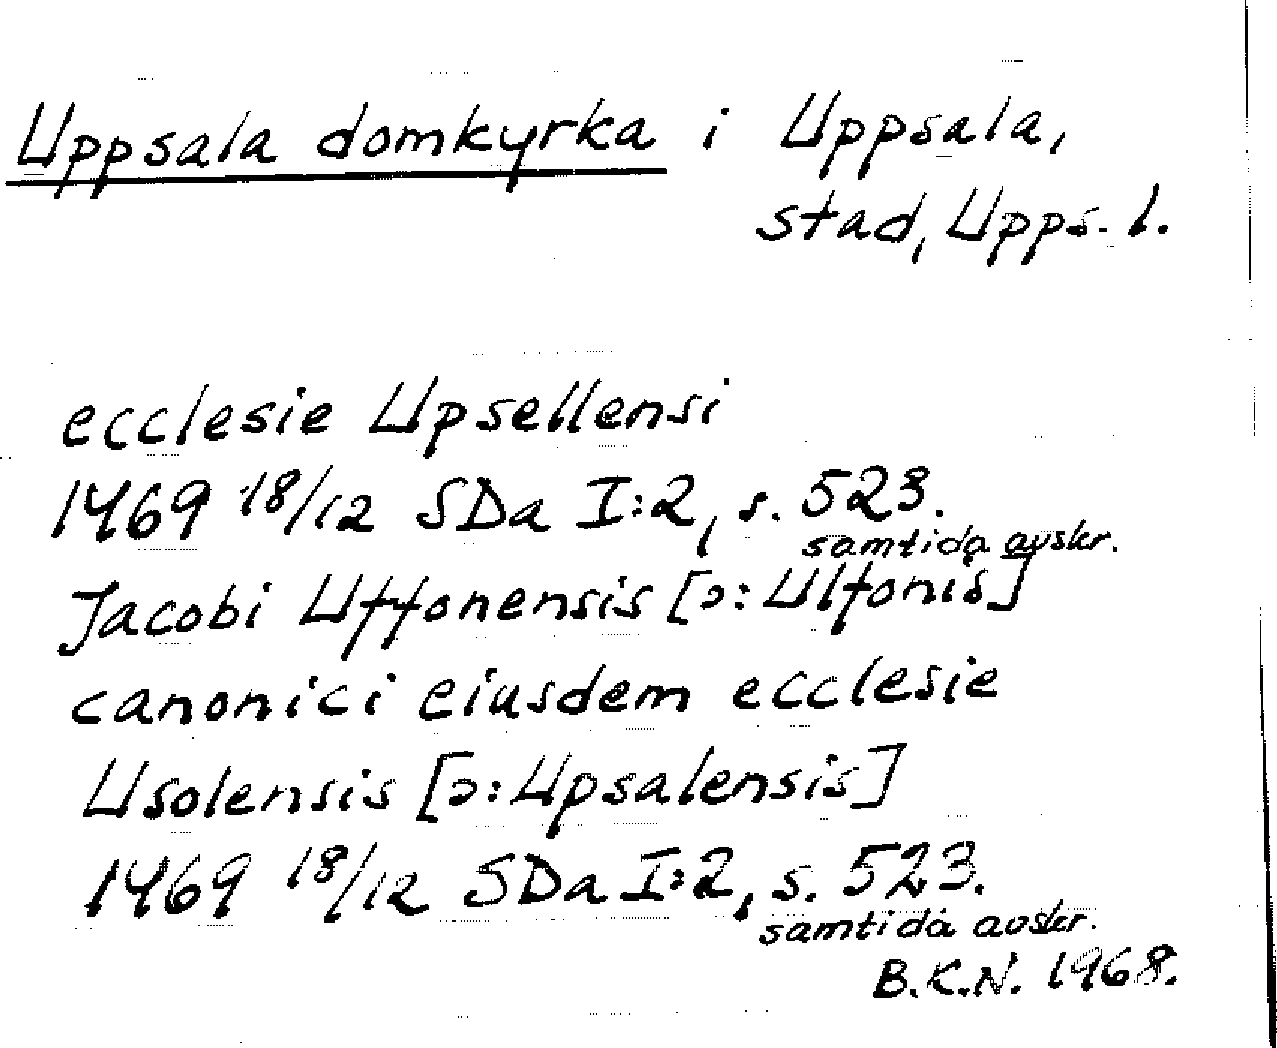 Uppsala domkyrka i Uppsala,
stad, Upps. l.
ecclesie Upsellensi
1469 18/12 SDa I:2, s. 523.
samtida avskr.
Jacobi Uffonensis [ɔ: Ulfonis]
canonici eiusdem ecclesie
Usolensis [ɔ: Upsalensis]
1469 18/12 SDa I:2, s. 523.
samtida avskr.
B.K.N. 1968.